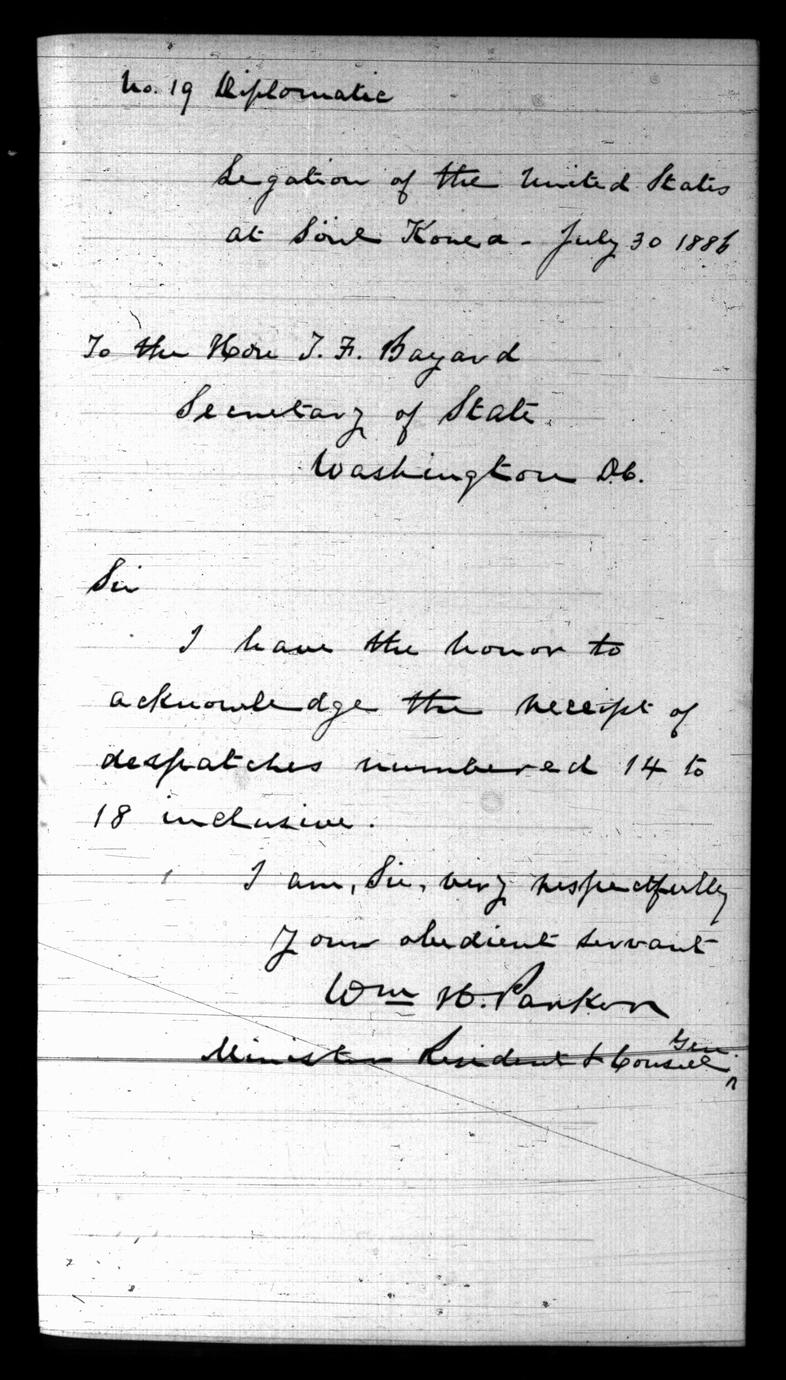 No. 19 Diplomatic
Legation of the United States
at Söul Korea - July 30 1886
To the Hon T. F. Bayard
Secretary of State
Washington D.C.
Sir
I have the honor to
acknowledge the receipt of
despatches numbered 14 to
18 inclusive.
I am, Sir, very respectfully
Your obedient servant
Wm H. Parker
Minister Resident & Consul Gen.